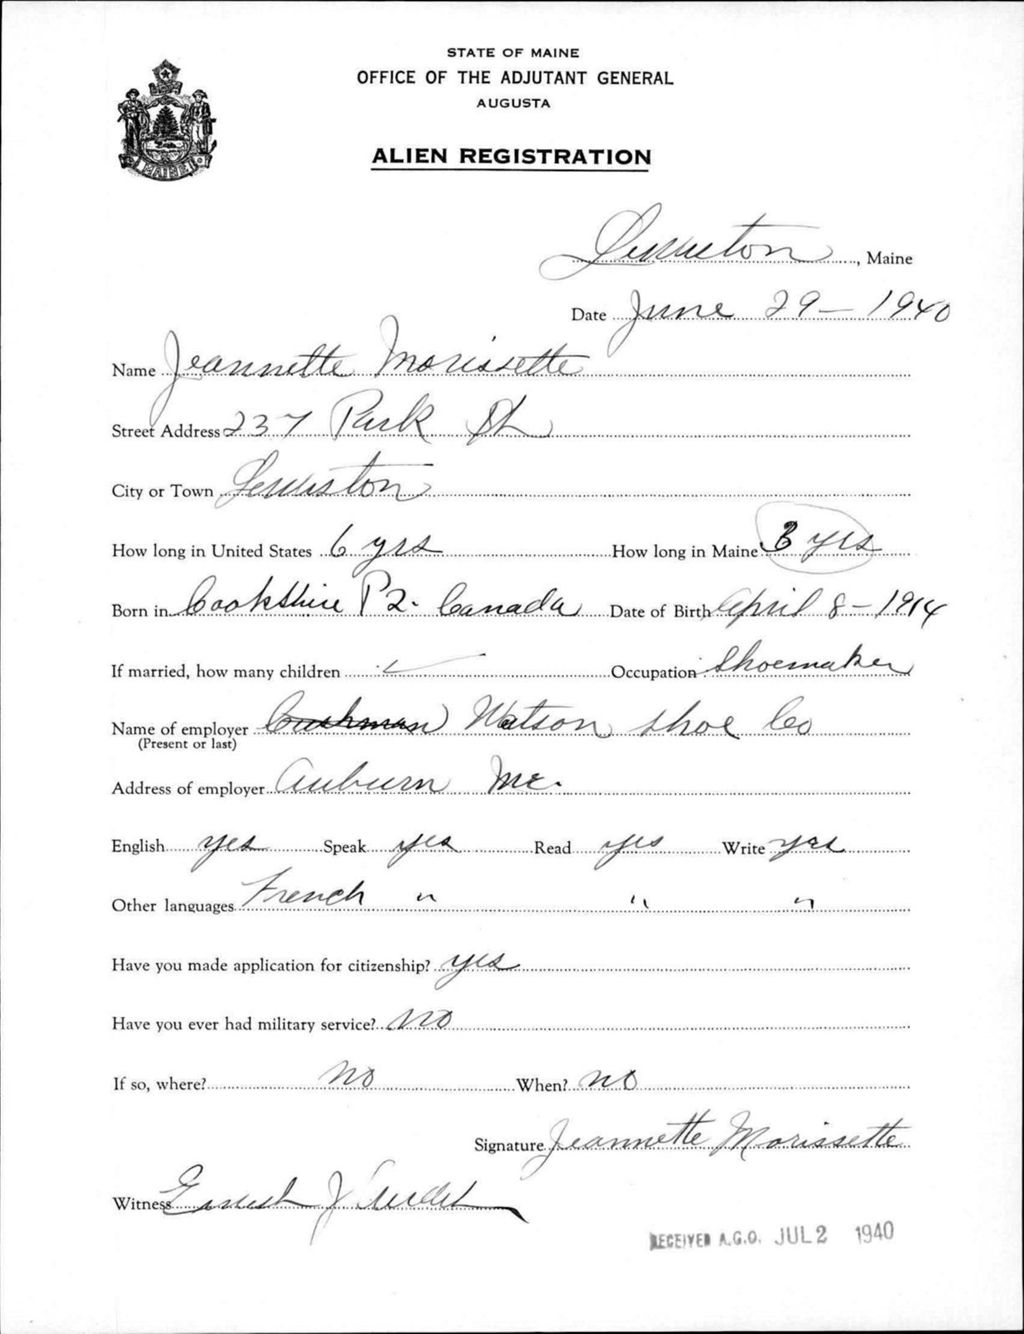 STATE OF MAINE
OFFICE OF THE ADJUTANT GENERAL
AUGUSTA
ALIEN REGISTRATION
MAINE
Lewiston, Maine
Date June 29 - 1940
Name Jeannette Morissette
Street Address 237 Park St
City or Town Lewiston
How long in United States 6 yrs How long in Maine 3 yrs
Born in Cookshire P2. Canada Date of Birth April 8 - 1914
If married, how many children Occupation Shoemaker
Name of employer Cushman Watson Shoe Co
(Present or last)
Address of employer Auburn Me.
English yes Speak yes Read yes Write yes
Other languages French " " "
Have you made application for citizenship? yes
Have you ever had military service? no
If so, where? no When? no
Signature Jeannette Morissette
Witness Ernest J
RECEIVED A.G.O. JUL 2 1940